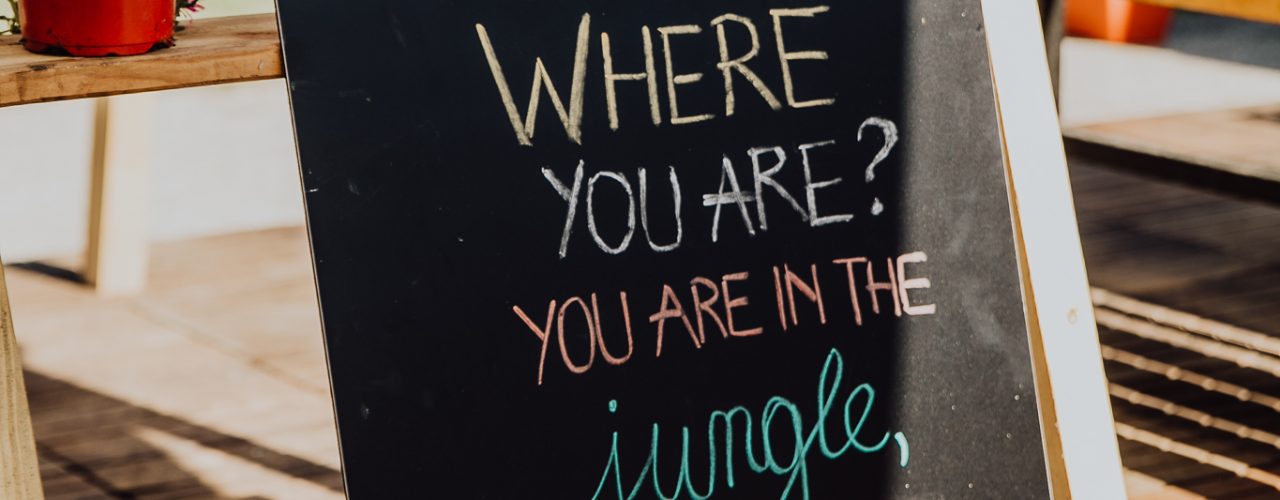 WHERE
YOU ARE?
YOU ARE IN THE
jungle,